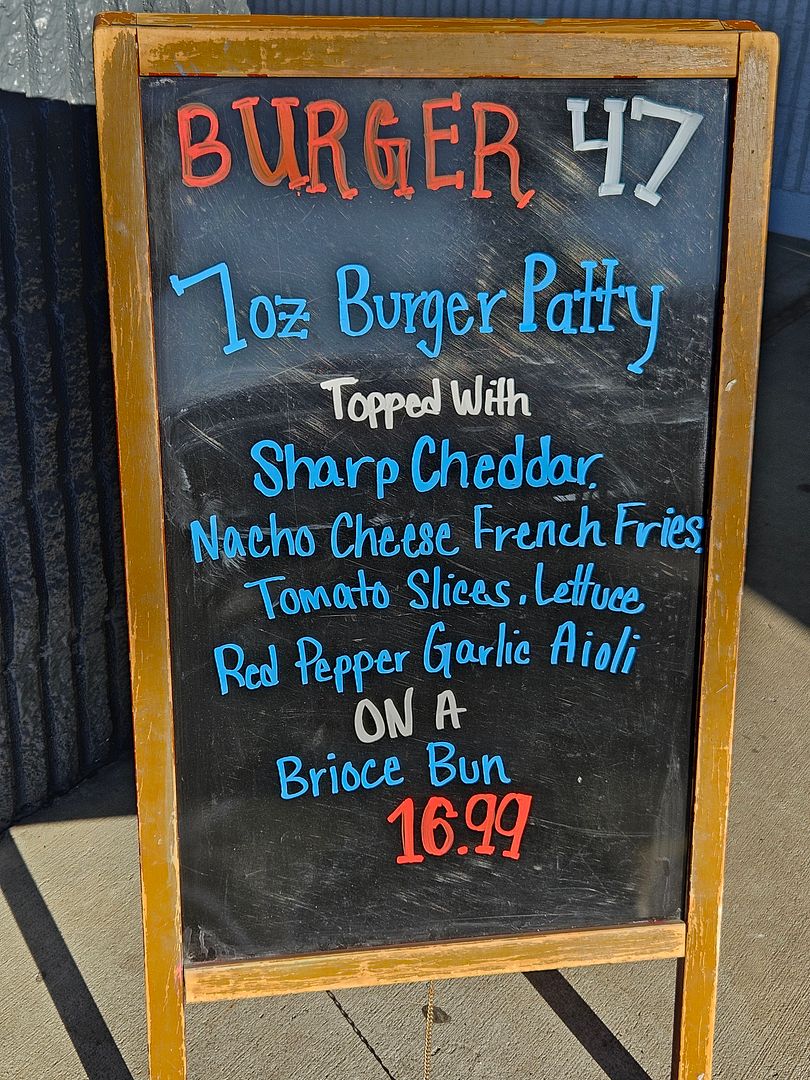 BURGER 47
7oz Burger Patty
Topped With
Sharp Cheddar,
Nacho Cheese French Fries,
Tomato Slices, Lettuce
Red Pepper Garlic Aioli
ON A
Brioce Bun
16.99